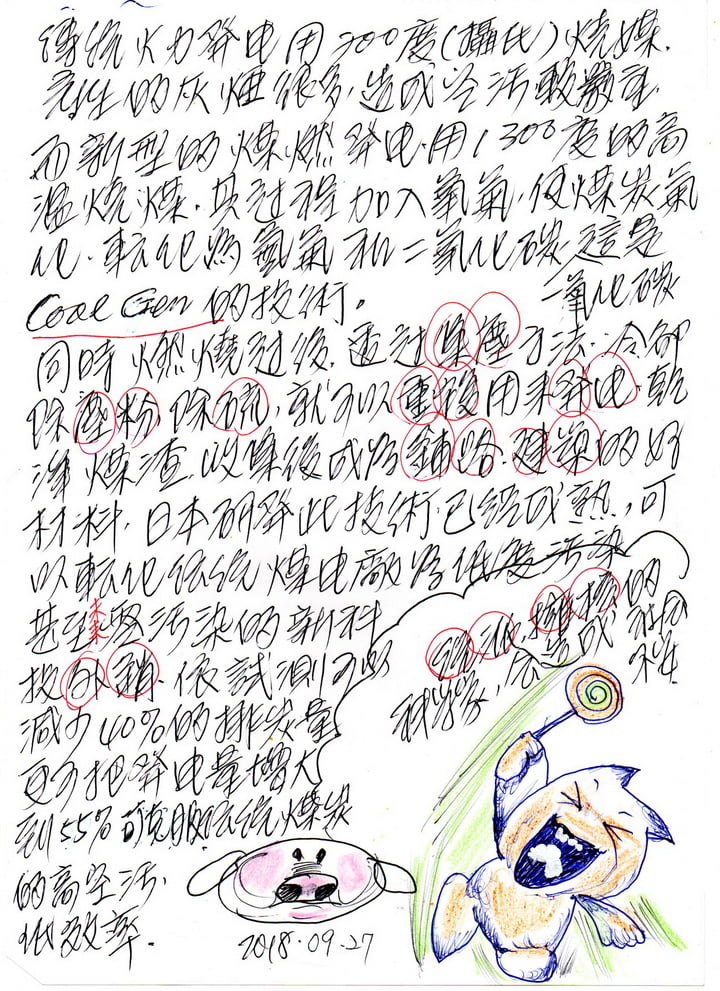 傳統火力發电用700度(攝氏)燒煤.
產生的灰煙很多,造成空污較嚴重,
而新型的煤燃發电用1300度的高
溫燒煤.其过程加入氧氣,使煤炭氣
化.転化為氫氣和二氧化碳這是
二氧化碳
Coal Gen 的技術。
同時燃燒过後,透过集塵方法,冷卻
除塵粉,除硫,就可以重複用來發电.乾
淨煤渣.收集後成為鋪路.建築的好
材料,日本研發此技術已經成熟,可
以転化傳統煤电廠為低度污染
甚至未來無污染的新科
技外銷.依試測可以
減少40%的排炭量
更可把發电量增大
到55%可克服傳統煤炭
的高空污.
低效率.
的
科学家,会造成社会
不
2018.09.27